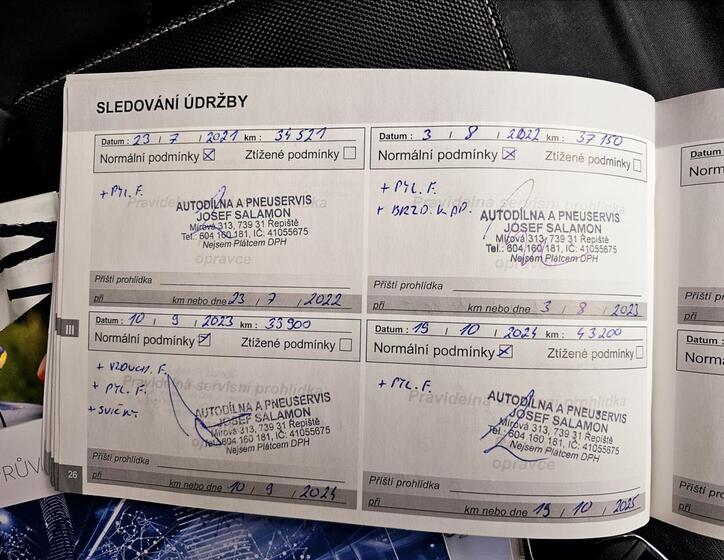 SLEDOVÁNÍ ÚDRŽBY
Datum : 23 / 7 / 2021 km : 34 521
Normální podmínky ☒ Ztížené podmínky ☐
+ PYL. F.
Pravidelná
AUTODÍLNA A PNEUSERVIS
JOSEF SALAMON
Mírová 313, 739 31 Řepiště
Tel.: 604 160 181, IČ: 41055675
Nejsem Plátcem DPH
opravce
Příští prohlídka
při km nebo dne 23 / 7 / 2022
Datum : 3 / 8 / 2022 km : 37 150
Normální podmínky ☒ Ztížené podmínky ☐
+ PYL. F.
Pravidelná servisní prohlídka
+ BRZD. KAP.
AUTODÍLNA A PNEUSERVIS
JOSEF SALAMON
Mírová 313, 739 31 Řepiště
Tel.: 604 160 181, IČ: 41055675
Nejsem Plátcem DPH
Příští prohlídka
při km nebo dne 3 / 8 / 2023
III
Datum : 10 / 9 / 2023 km : 39 900
Normální podmínky ☑ Ztížené podmínky ☐
+ VZDUCH. F.
Pravidelná servisní prohlídka
+ PYL. F.
+ SVÍČKY
AUTODÍLNA A PNEUSERVIS
JOSEF SALAMON
Mírová 313, 739 31 Řepiště
Tel.: 604 160 181, IČ: 41055675
Nejsem Plátcem DPH
Příští prohlídka
při km nebo dne 10 / 9 / 2024
Datum : 19 / 10 / 2024 km : 43 200
Normální podmínky ☒ Ztížené podmínky ☐
+ PYL. F.
Pravidelná servisní prohlídka
AUTODÍLNA A PNEUSERVIS
JOSEF SALAMON
Mírová 313, 739 31 Řepiště
Tel.: 604 160 181, IČ: 41055675
Nejsem Plátcem DPH
opravce
Příští prohlídka
při km nebo dne 19 / 10 / 2025
26
Datum
Norm
Příští p
při
Datum
Norm
Příští p
při